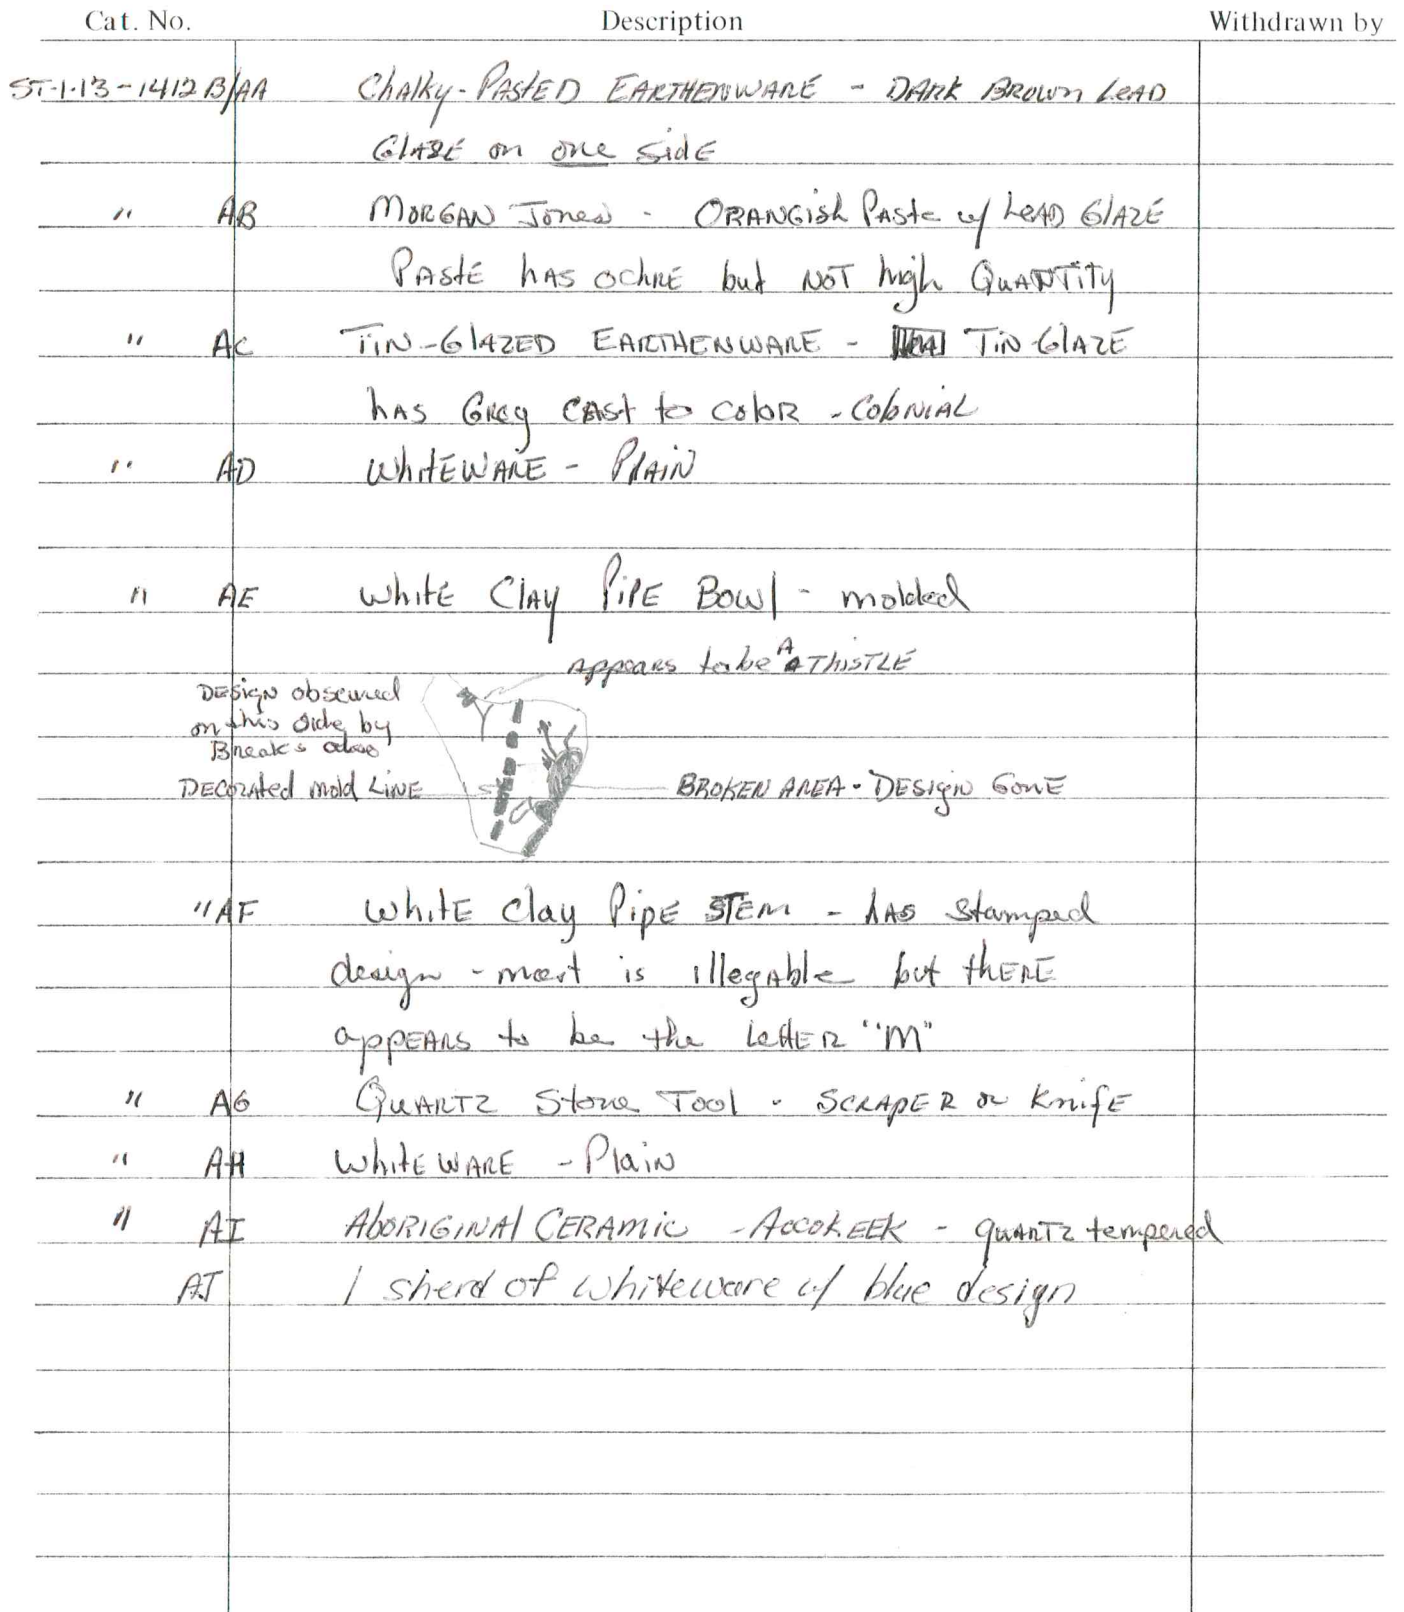 Cat. No. Description Withdrawn by
ST-1-13-1412B/AA Chalky-Pasted Earthenware - Dark Brown Lead
Glaze on one side
" AB Morgan Jones - Orangish Paste w/ Lead Glaze
Paste has ochre but not high Quantity
" AC Tin-Glazed Earthenware - Tin Glaze
has Grey cast to color - Colonial
" AD Whiteware - Plain
" AE White Clay Pipe Bowl - molded
appears to be A Thistle
Design obscured
on this side by
Breaks also
Decorated mold Line
Broken Area - Design Gone
" AF White Clay Pipe Stem - has stamped
design - most is illegable but there
appears to be the letter "M"
" AG Quartz Stone Tool - Scraper or Knife
" AH Whiteware - Plain
" AI Aboriginal Ceramic - Accokeek - quartz tempered
AJ 1 sherd of whiteware w/ blue design